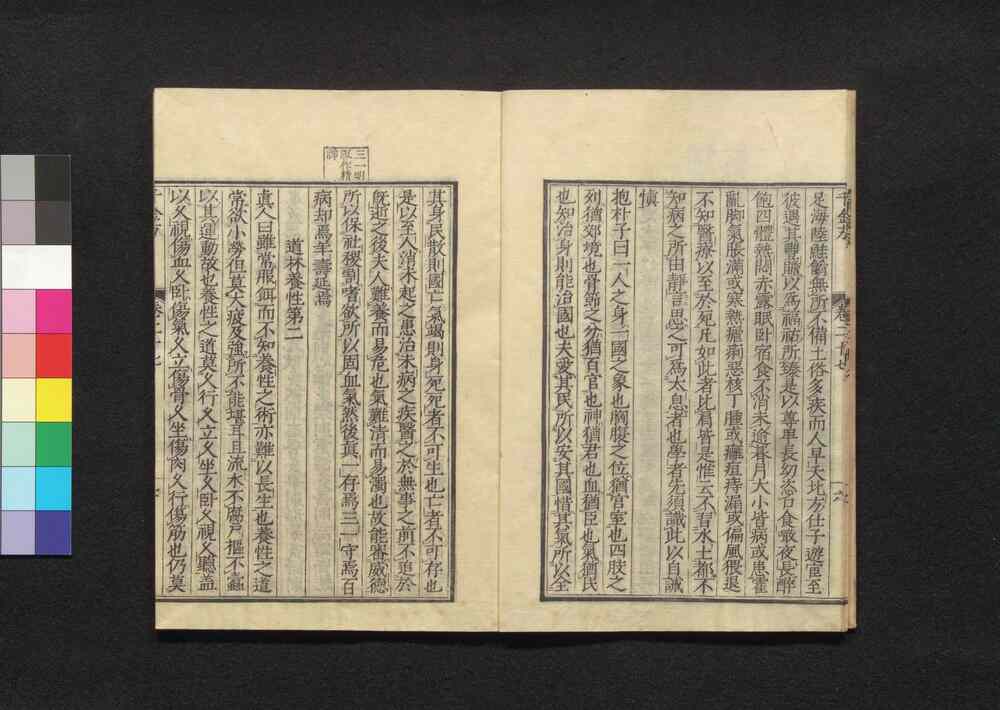 足海陸鮭鱐無所不備土俗多疾而人早夭北方仕子遊宦至
彼遇其豐贍以為福祐所臻是以尊卑長幼恣口食噉夜長醉
飽四體熱悶赤露眠臥宿食不消未逾朞月大小皆病或患霍
亂腳氣脹滿或寒熱瘧痢惡核丁腫或癰疽痔漏或偏風猥退
不知醫療以至於死凡如此者比肩皆是惟云不習水土都不
知病之所由靜言思之可爲太息者也學者先須識此以自誡
慎
抱朴子曰一人之身一國之象也胸腹之位猶宮室也四肢之
列猶郊境也骨節之分猶百官也神猶君也血猶臣也氣猶民
也知治身則能治國也夫愛其民所以安其國惜其氣所以全
三一明
版作精
其身民散則國亡氣竭則身死死者不可生也亡者不可存也
是以至人消未起之患治未病之疾醫之於無事之前不追於
旣逝之後夫人難養而易危也氣難清而易濁也故能審威德
所以保社稷割嗜欲所以固血氣然後眞一存焉三一守焉百
病却焉年壽延焉
道林養性第二
眞人曰雖常服餌而不知養性之術亦難以長生也養性之道
常欲小勞但莫大疲及強所不能堪耳且流水不腐戶樞不蠹
以其運動故也養性之道莫久行久立久坐久臥久視久聽蓋
以久視傷血久臥傷氣久立傷骨久坐傷肉久行傷筋也仍莫